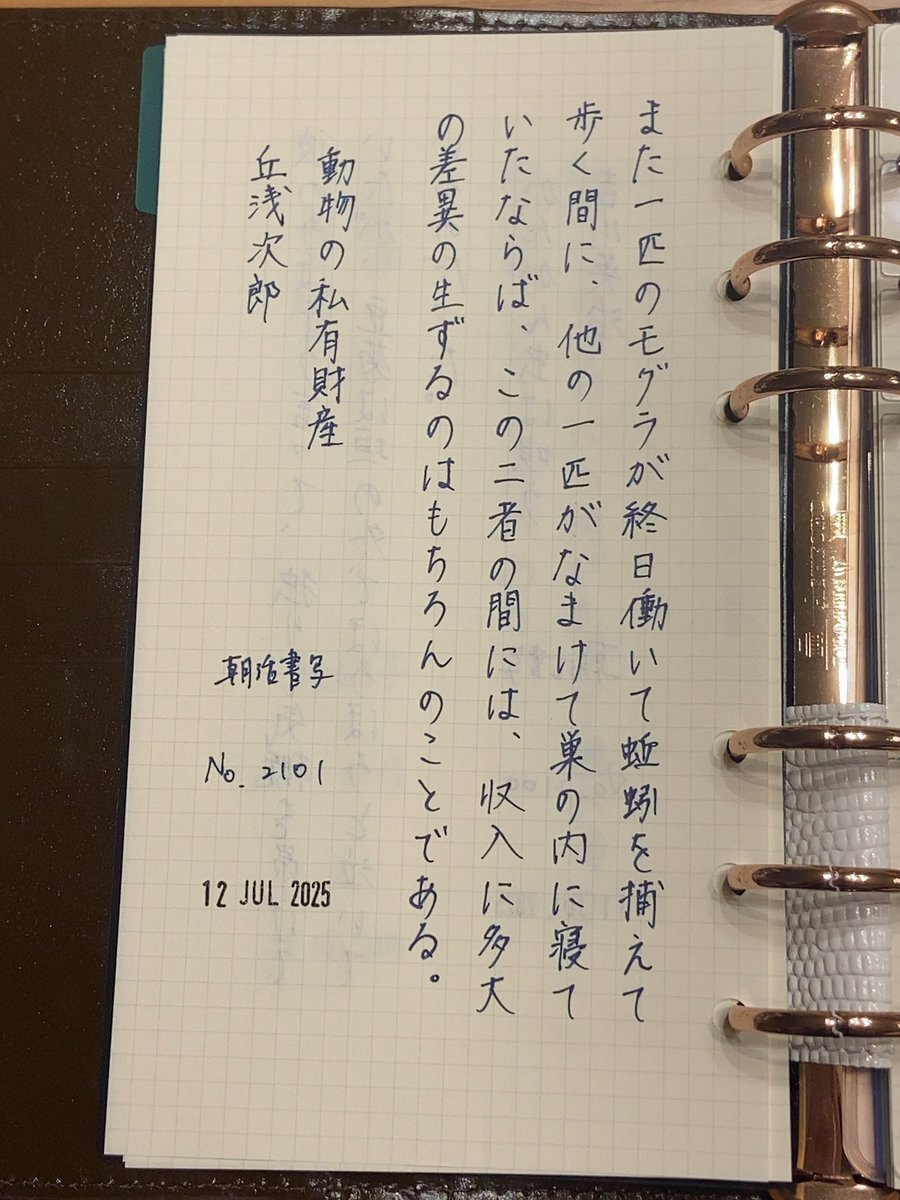 また一匹のモグラが終日働いて蚯蚓を捕えて
歩く間に、他の一匹がなまけて巣の内に寝て
いたならば、この二者の間には、収入に多大
の差異の生ずるのはもちろんのことである。
動物の私有財産
丘浅次郎
朝活書写
No. 2101
12 JUL 2025